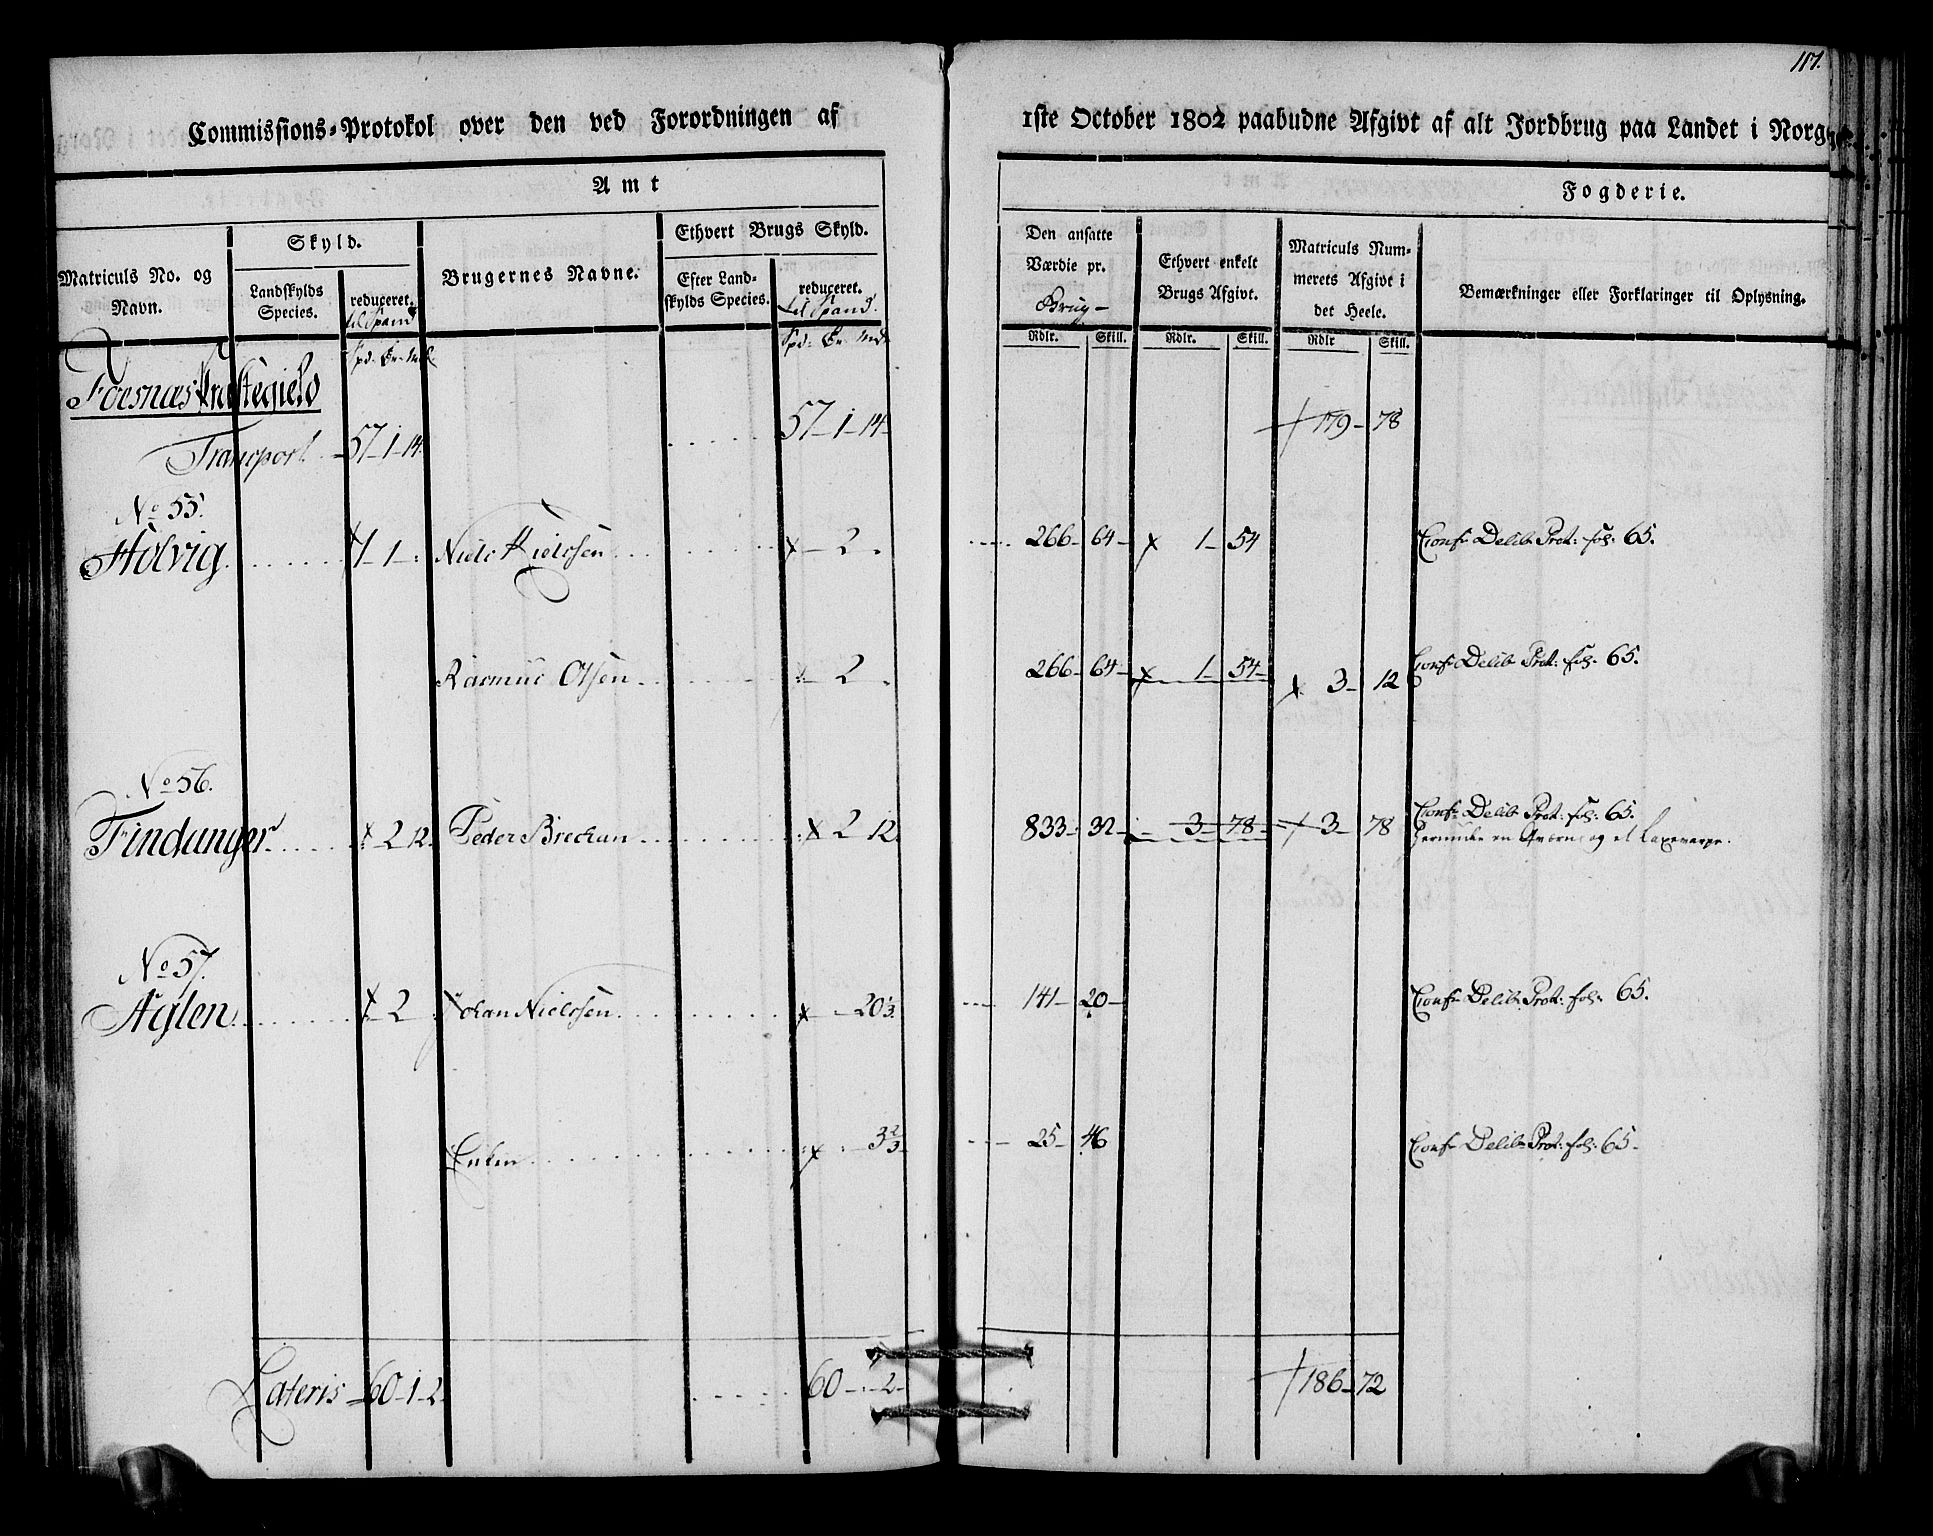 117.
Commissions-Protokol over den ved Forordningen af 1ste October 1802 paabudne Afgivt af alt Jordbrug paa Landet i Norge
Amt Fogderie.
Matriculs No. og Navn.
Skyld.
Landskylds Species.
reduceret. til Spand
Spd: Ør. Mk
Brugernes Navne.
Ethvert Brugs Skyld.
Efter Landskylds Species.
reduceret. til Spand.
Spd: Ør. Mk
Den ansatte Værdie pr. Brug-
Rdlr. Skill.
Ethvert enkelt Brugs Afgivt.
Rdlr. Skill.
Matriculs Nummerets Afgivt i det Heele.
Rdlr Skill.
Bemærkninger eller Forklaringer til Oplysning.
Foesnæs Præstegield
Transport 57-1-14. 57-1-14 179-78
No 55.
Holvig 1-1- Niels Nielssen 2 266-64 1-54 Conf: Delib: Prot: fol: 65.
Rasmus Olsen 2 266-64 1-54 3-12 Conf: Delib: Prot: fol: 65.
No 56.
Findanger 2 12 Peder Brechan 2 12 833-32 3-78 3-78 Conf: Delib: Prot: fol: 65.
herunder en Qværn og et Laxevarpe.
No 57.
Aglen 2 Johan Nielssen 20 1/3 141-20 Conf: Delib: Prot: fol: 65.
Enken 3 2/3 25-46 Conf: Delib: Prot: fol: 65.
Lateris 60-1-2 60-2- 186-72